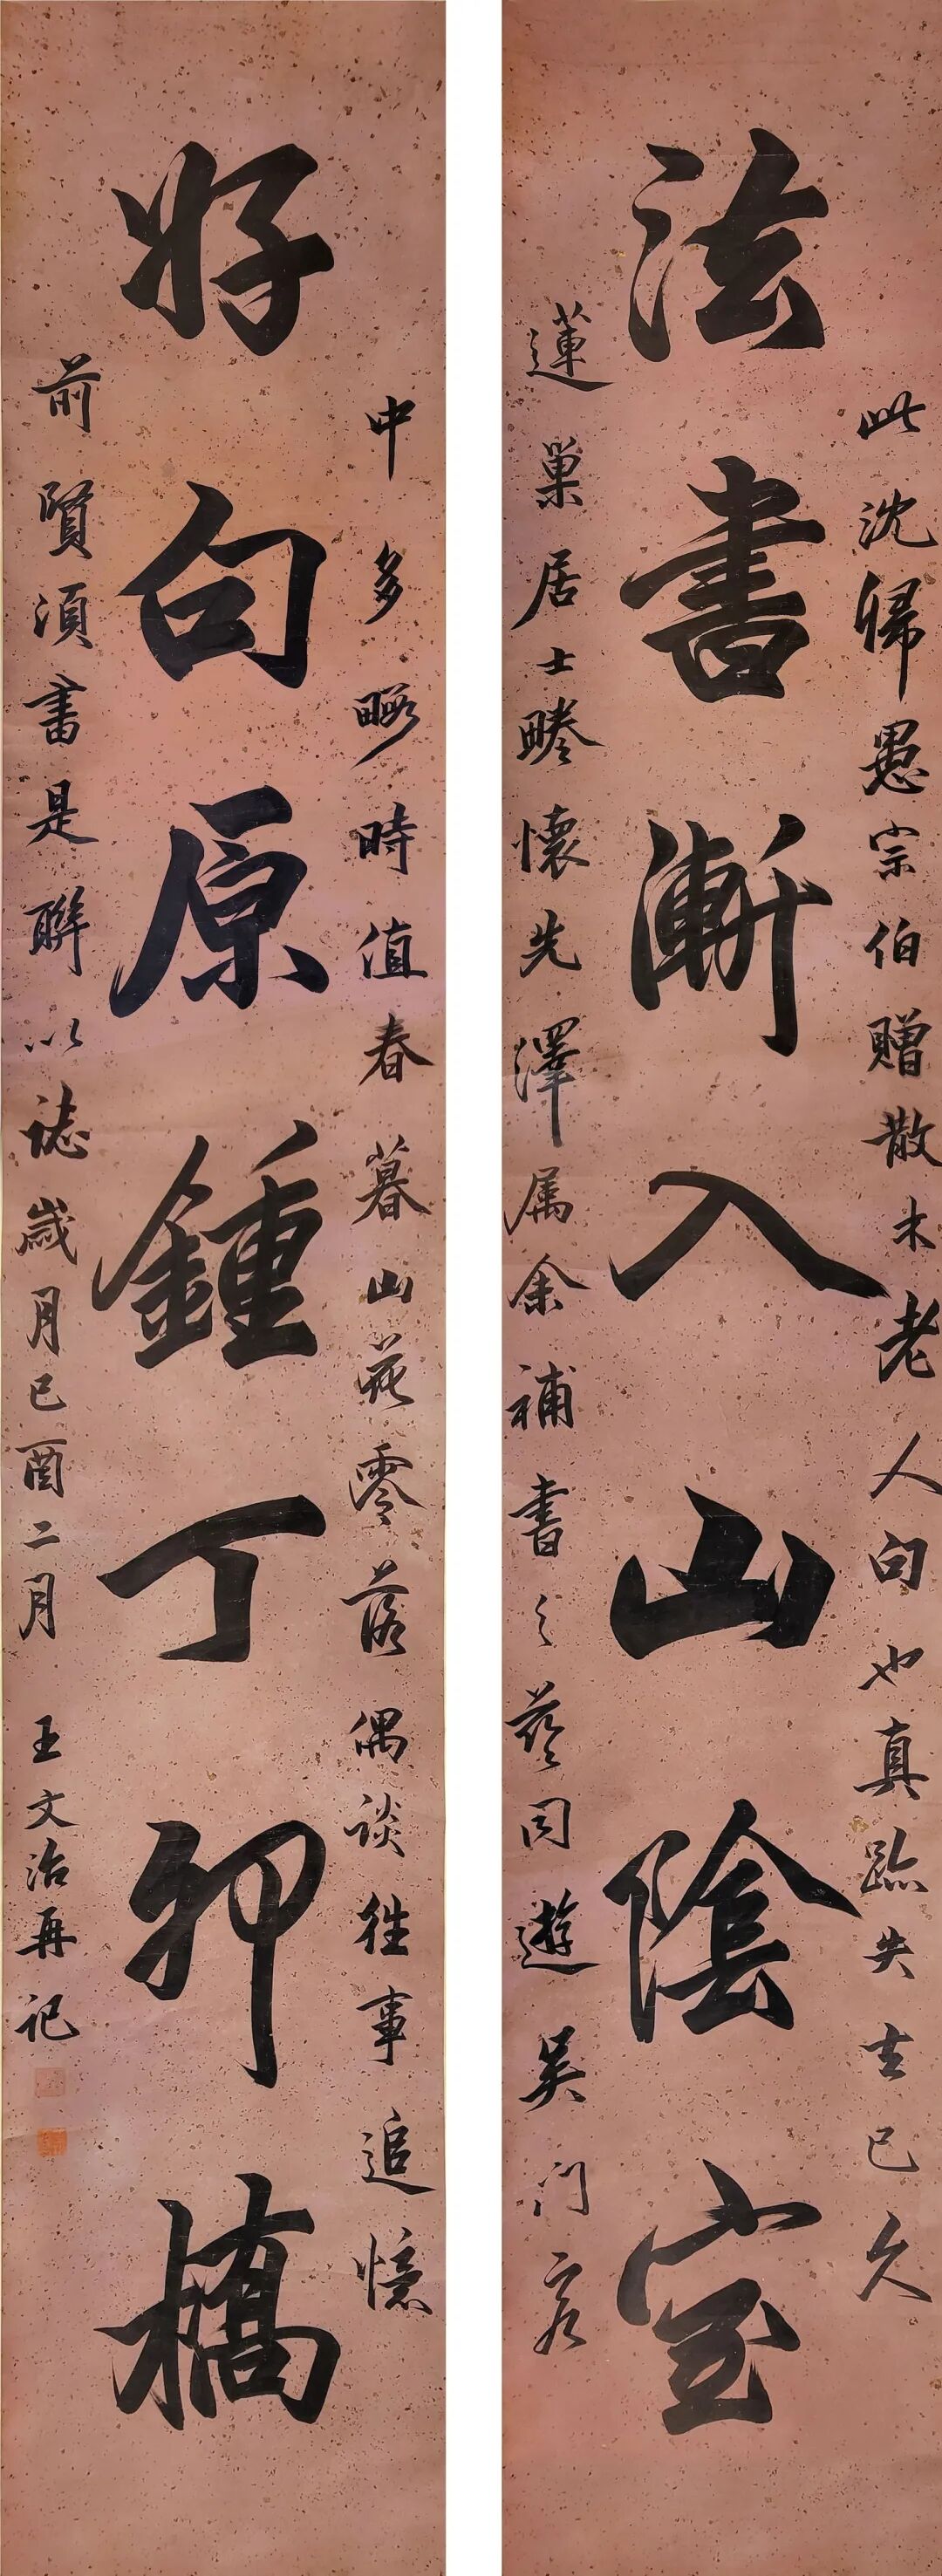 此沈歸愚宗伯贈散木老人句也真跡失去已久
法書漸入山陰室
蓮巢居士睠懷先澤属余補書之茲同遊吳門客
中多暇時值春暮山花零落偶谈往事追憶
好句原鍾丁卯橋
前賢須書是聯以誌歲月己酉二月 王文治再记